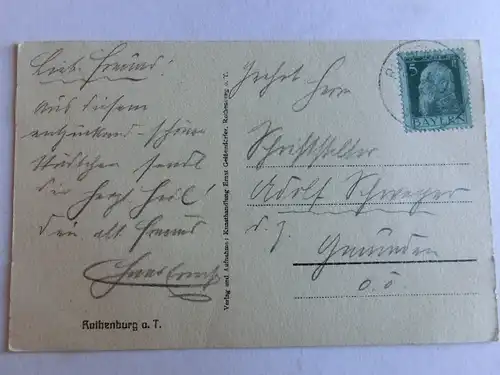 Lieb. Freund!
Aus diesem
entzückend-schönen
Städtchen sendet
Dir herzl. Heil!
Dein alt. Freund
Rothenburg o. T.
Verlag und Aufnahme: Kunsthandlung Ernst Geissendörfer, Rothenburg o. T.
Herrn
Schriftsteller
Adolf Schwayer
d. Z.
Gmunden
O.Ö.
5
BAYERN